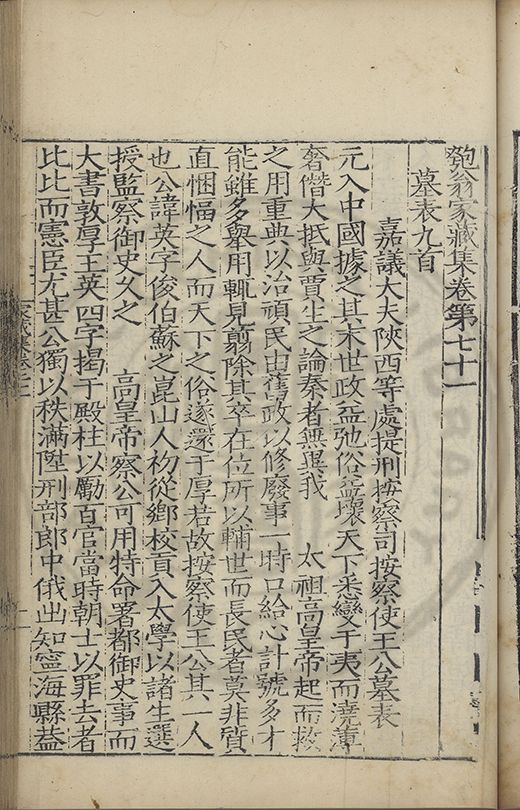 匏翁家藏集卷第七十一
墓表九首
嘉議大夫陝西等處提刑按察司按察使王公墓表
元入中國據之其末世政益弛俗益壞天下悉變于夷而澆薄
奢僭大抵與賈生之論秦者無異我 太祖高皇帝起而救
之用重典以治頑民由舊政以修廢事一時口給心計號多才
能雖多舉用輒見翦除其卒在位所以輔世而長民者莫非質
直悃愊之人而天下之俗遂還于厚若故按察使王公其一人
也公諱英字俊伯蘇之崑山人初從鄉校貢入太學以諸生選
授監察御史久之 高皇帝察公可用特命署都御史事而
大書敦厚王英四字揭于殿柱以勵百官當時朝士以罪去者
比比而憲臣尤甚公獨以秩滿陞刑部郎中俄出知寧海縣益